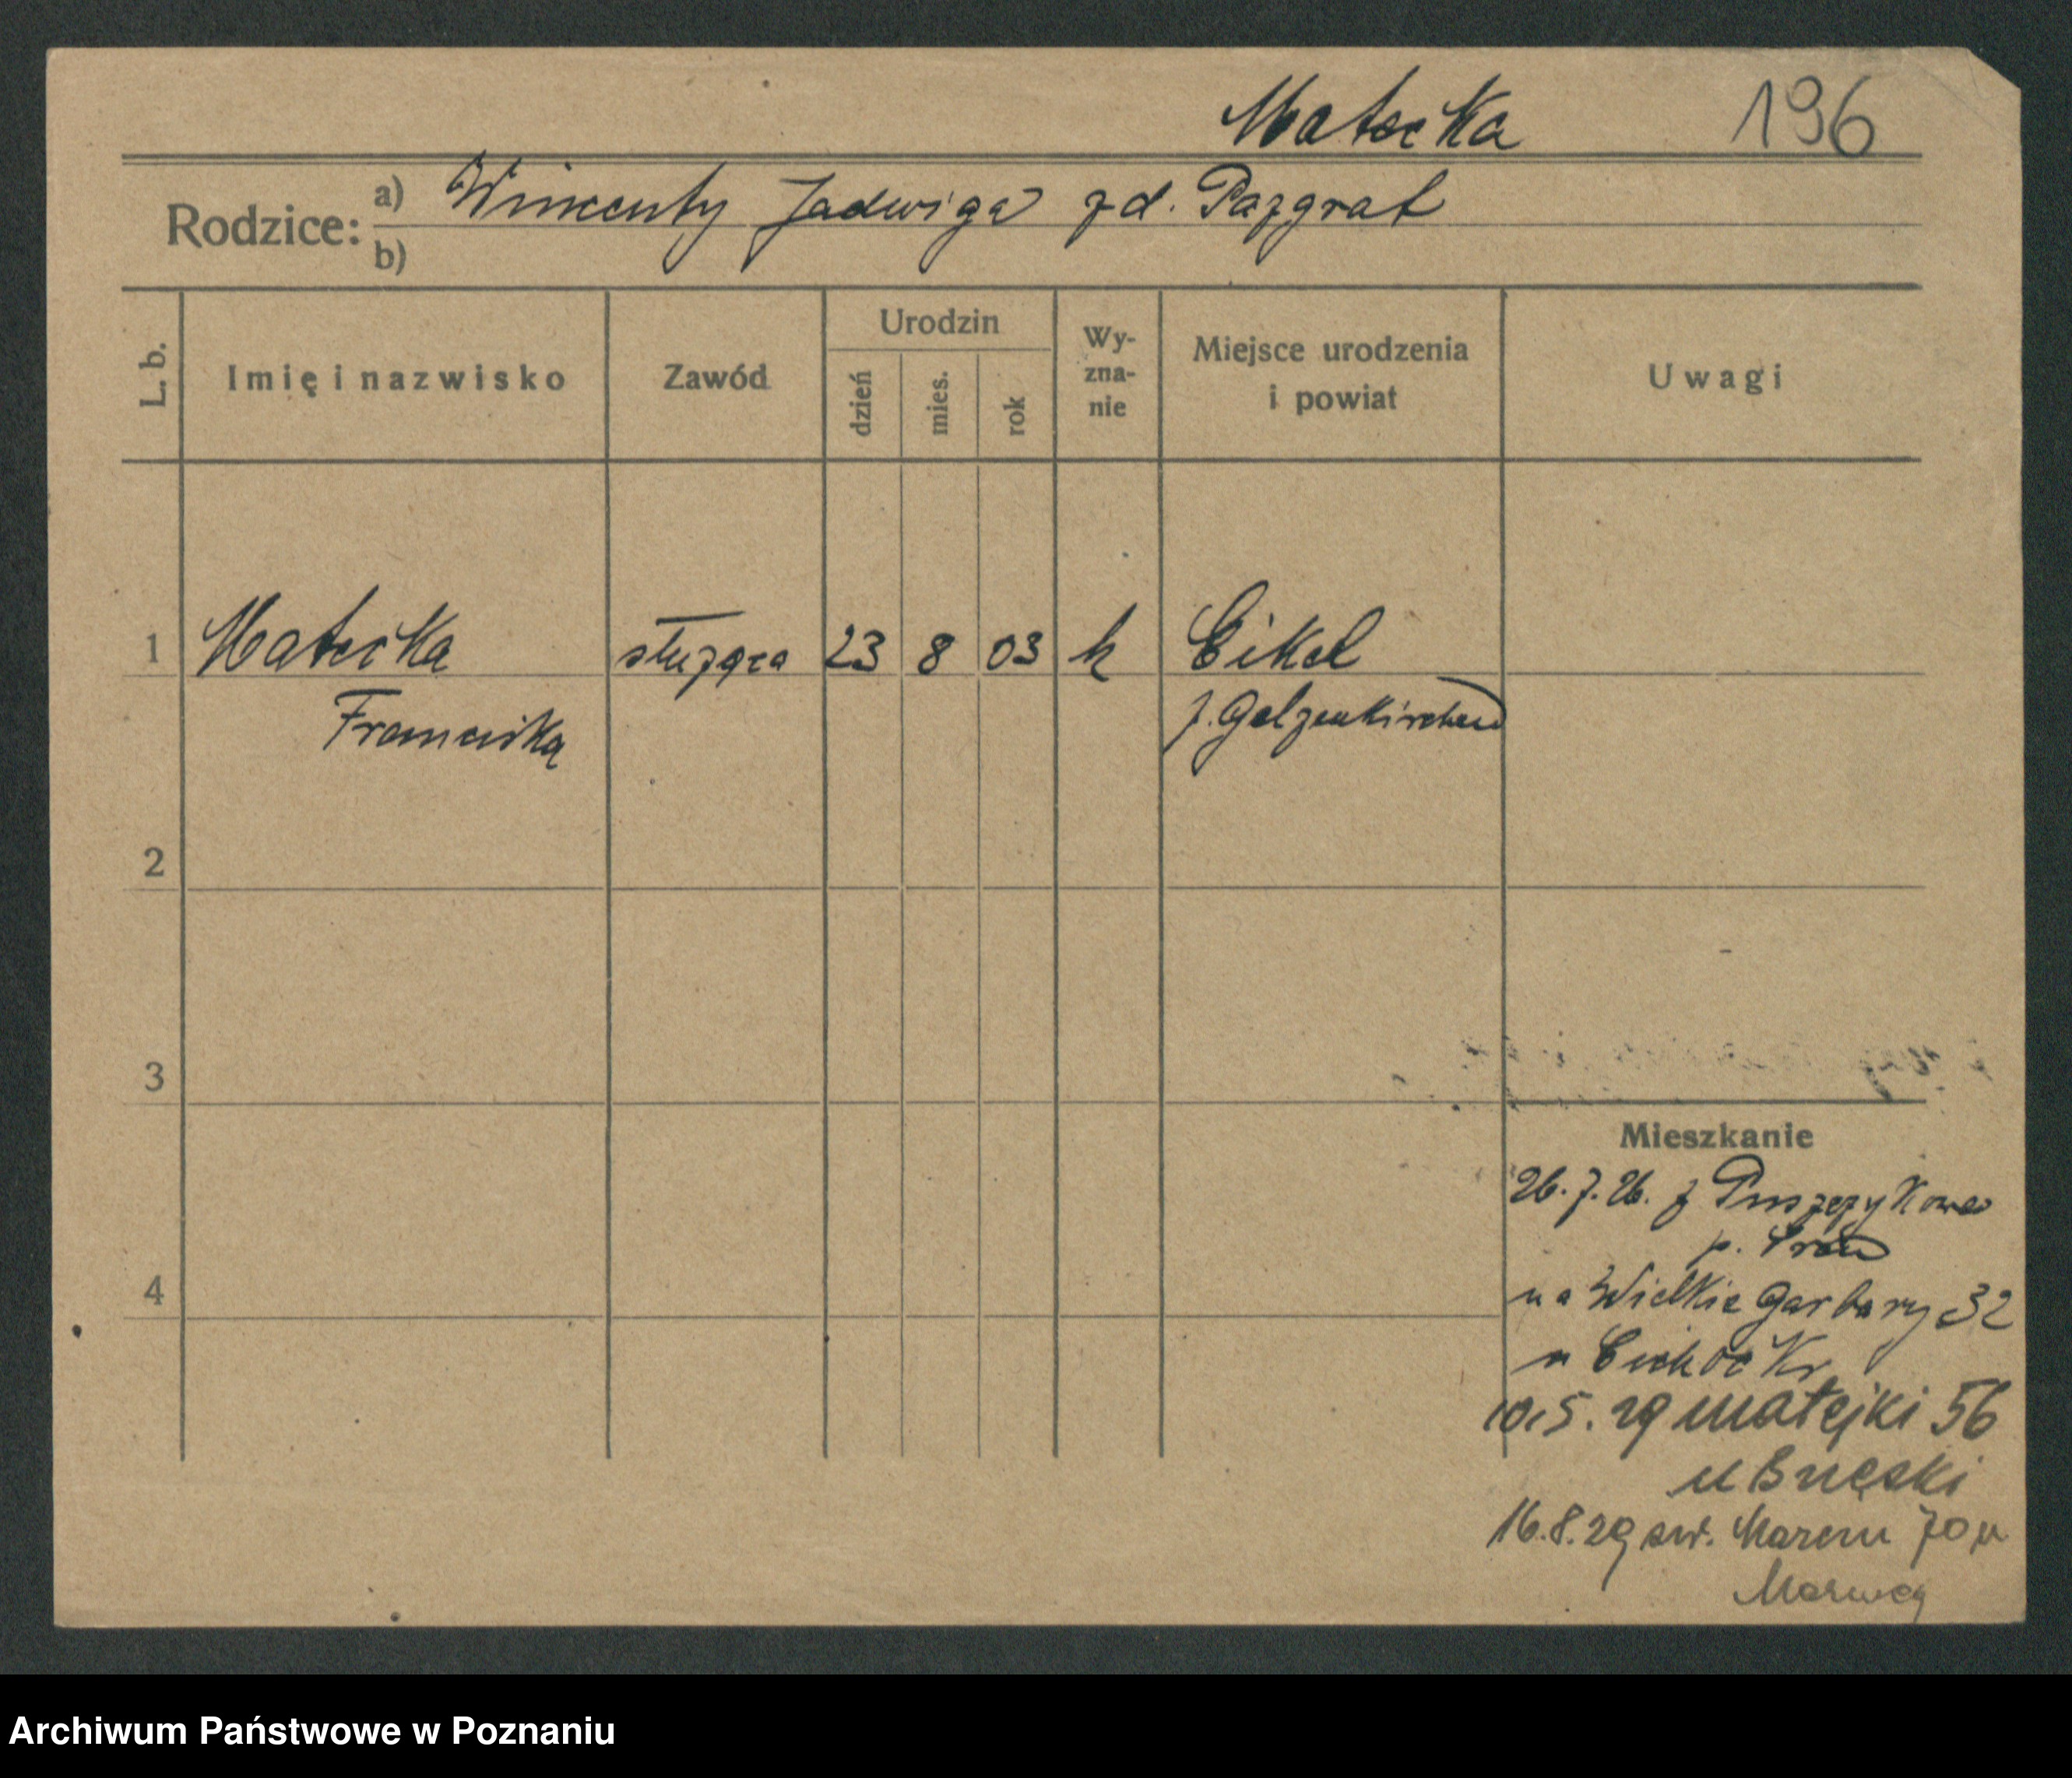 Matecka 196
Rodzice: a) Wincenty Jadwiga zd. Pazgrat
b)
L. b. Imię i nazwisko Zawód Urodzin dzień mies. rok Wy-zna-nie Miejsce urodzenia i powiat Uwagi
1 Matecka służąca 23 8 03 k Eikel
Franciszka p. Gelzenkirchen
2
3
Mieszkanie
26.7.26. z Puszczykowa
p. Śrem
4
na Wielkie Garbary 32
u Cichocki
10.5.29 Matejki 56
u Bręski
16.8.29 św. Marcin 70 u
Archiwum Państwowe w Poznaniu